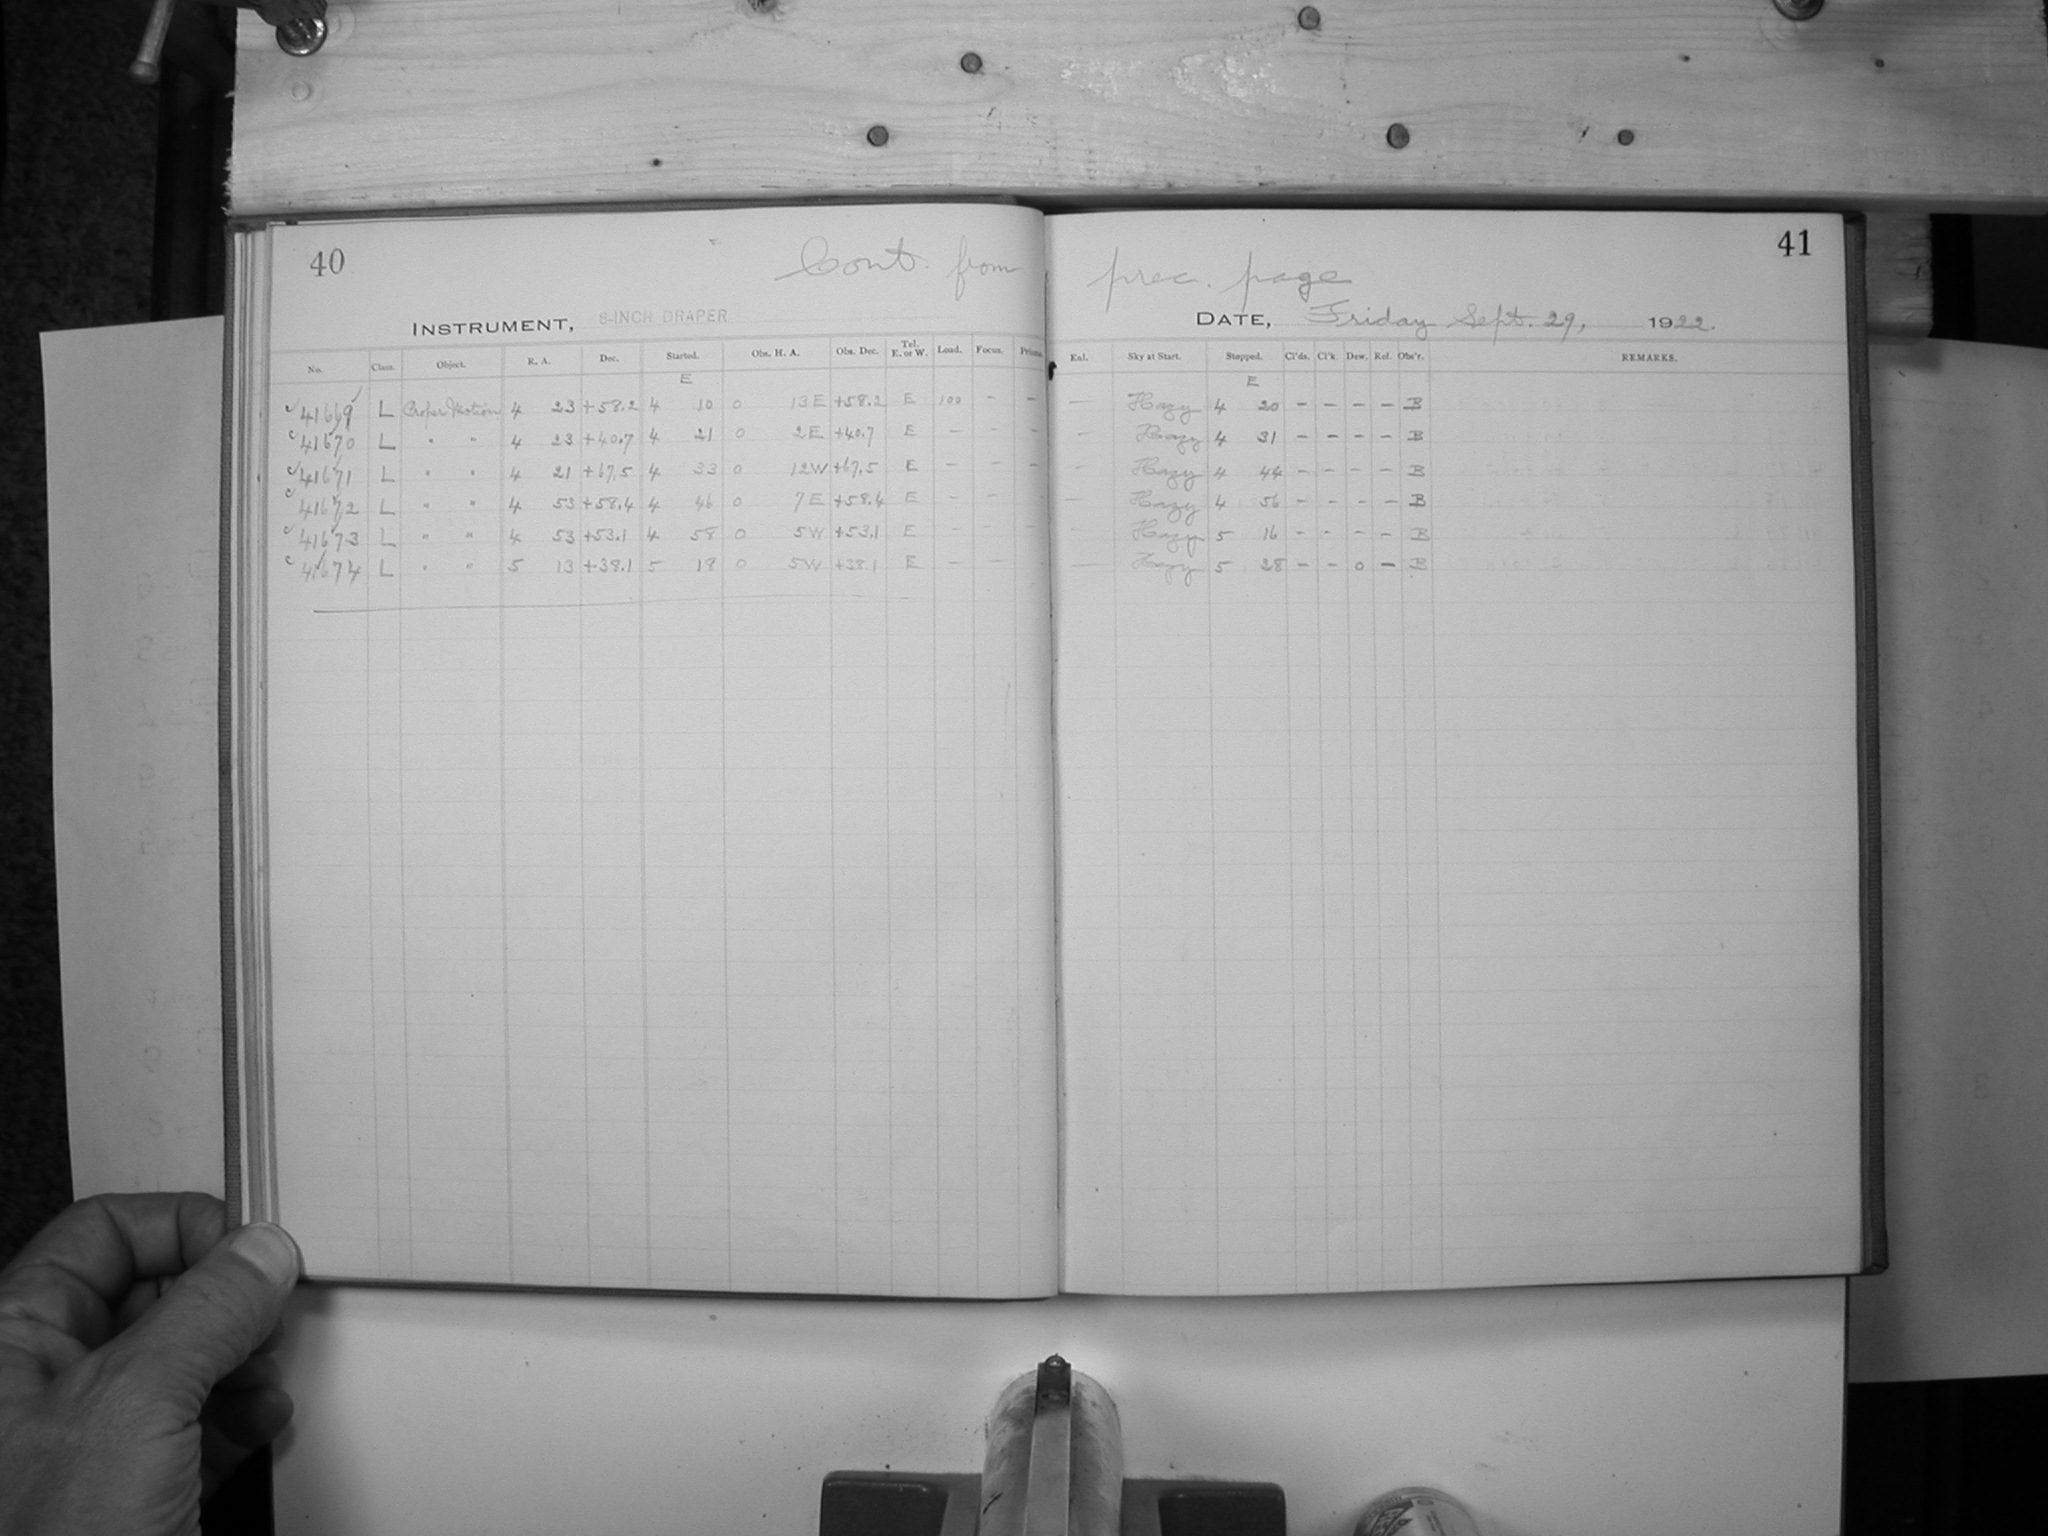 40
41
Cont. from prec. page
INSTRUMENT, 8-INCH DRAPER
DATE, Friday Sept. 29, 1922.
No. Class. Object. R. A. Dec. Started. Obs. H. A. Obs. Dec. Tel. E. or W. Load. Focus. Prisms. Enl. Sky at Start. Stopped. Cl'ds. Cl'k. Dew. Ref. Obs'r. REMARKS.
E E
41669 L Proper Motion 4 23 +58.2 4 10 0 13 E +58.2 E 100 - - - Hazy 4 20 - - - - B
41670 L " " 4 23 +40.7 4 21 0 2 E +40.7 E - - - Hazy 4 31 - - - - B
41671 L " " 4 21 +67.5 4 33 0 12 W +67.5 E - - - - Hazy 4 44 - - - - B
41672 L " " 4 53 +58.4 4 46 0 7 E +58.4 E - - - Hazy 4 56 - - - - B
41673 L " " 4 53 +53.1 4 58 0 5 W +53.1 E - - - - Hazy 5 16 - - - - B
41674 L " " 5 13 +38.1 5 18 0 5 W +38.1 E - - - Hazy 5 28 - - 0 - B